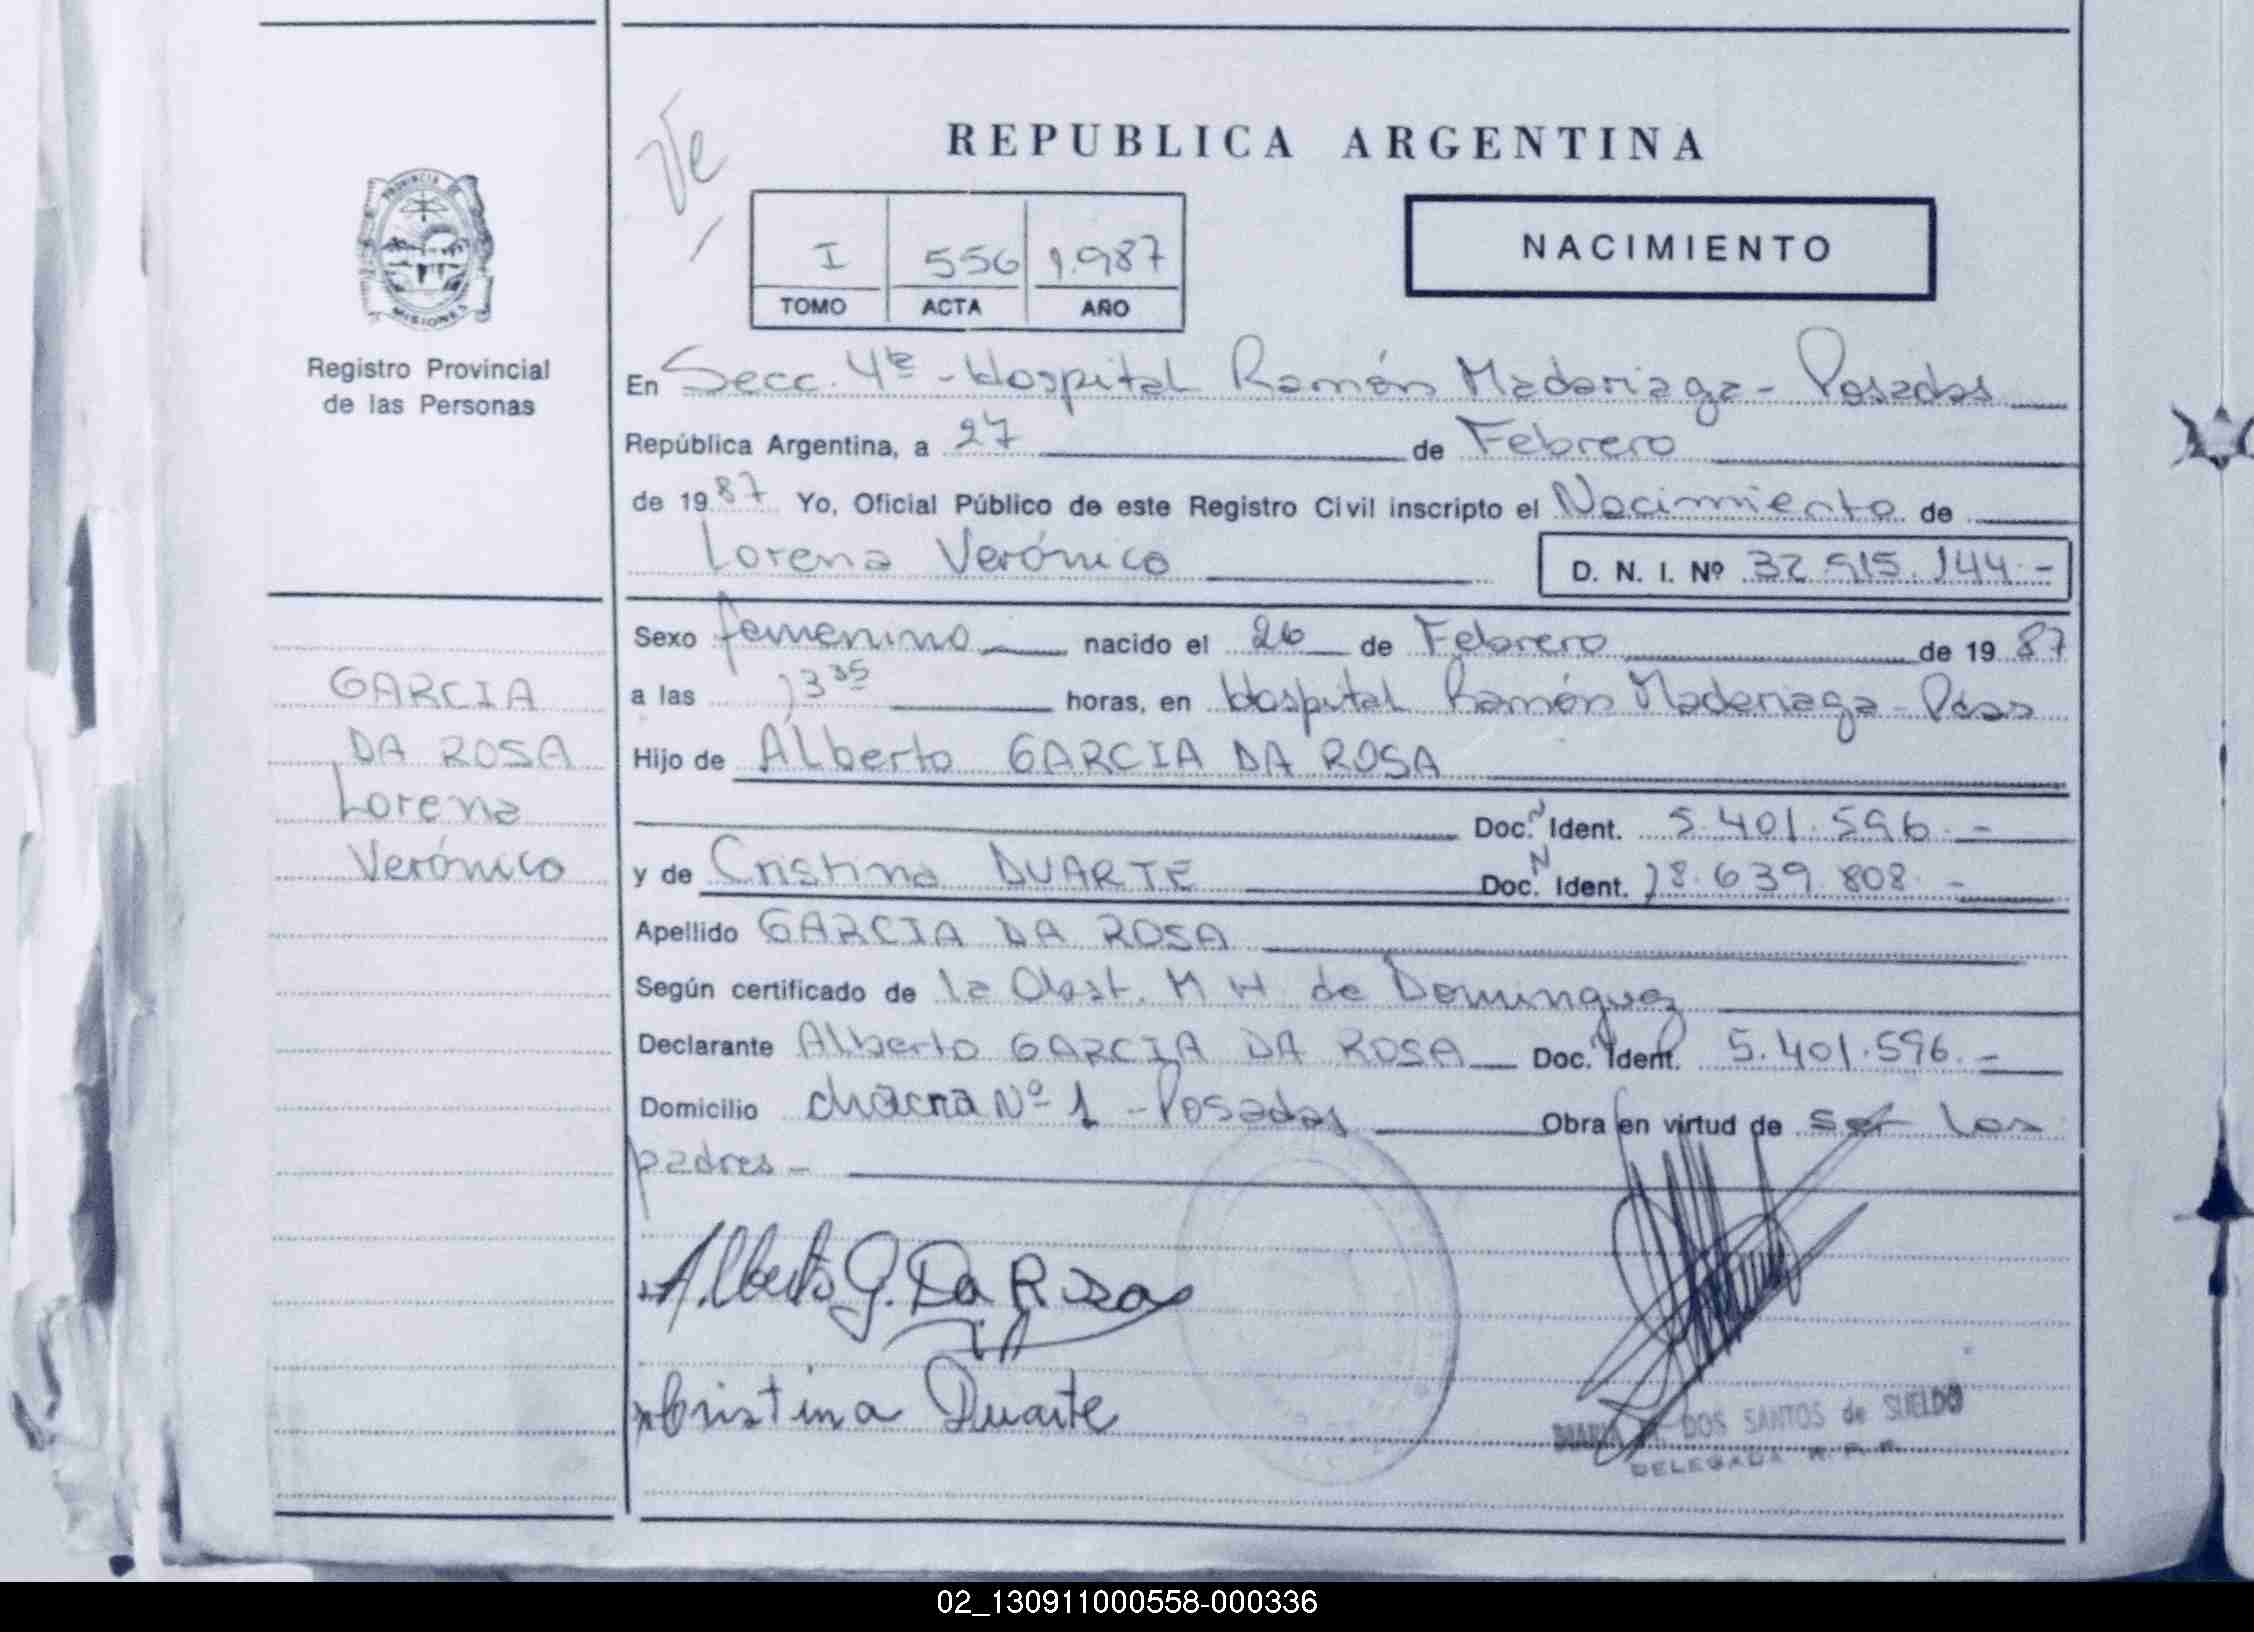 REPUBLICA ARGENTINA
PROVINCIA DE
MISIONES
Registro Provincial
de las Personas
I 556 1.987
TOMO ACTA AÑO
NACIMIENTO
En Secc. 4ta - Hospital Ramón Madariaga - Posadas
República Argentina, a 27 de Febrero
de 1987 Yo, Oficial Público de este Registro Civil inscripto el Nacimiento de
Lorena Verónica D. N. I. Nº 32.915.144.-
Sexo femenino nacido el 26 de Febrero de 1987
a las 13 35 horas, en Hospital Ramón Madariaga - Pdas
Hijo de Alberto GARCIA DA ROSA
Doc. N Ident. 5.401.596.-
y de Cristina DUARTE Doc. N Ident. 18.639.808.-
Apellido GARCIA DA ROSA
Según certificado de la Obst. M H de Dominguez
Declarante Alberto GARCIA DA ROSA Doc. Ident. 5.401.596.-
Domicilio chacra Nº 1 - Posadas Obra en virtud de ser los
padres -
GARCIA
DA ROSA
Lorena
Verónica
Alberto G. Da Rosa
Cristina Duarte
MARIA DOS SANTOS de SUELDO
DELEGADA R. P. P.
02_130911000558-000336